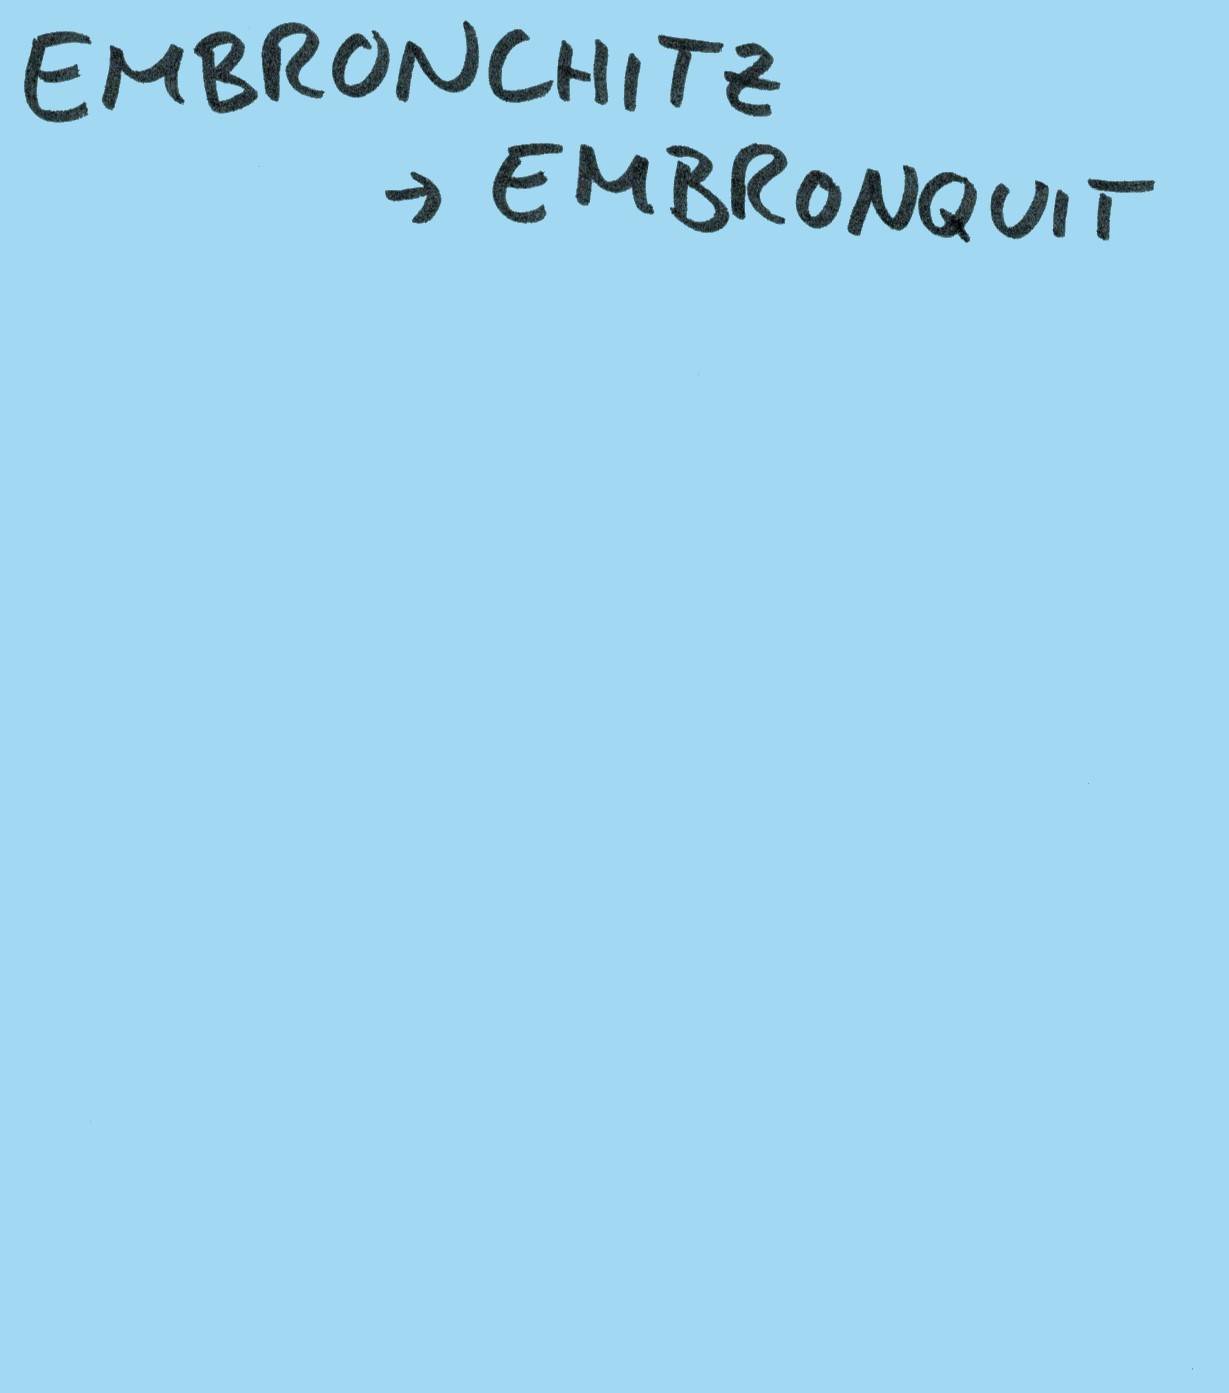 EMBRONCHITZ
→ EMBRONQUIT